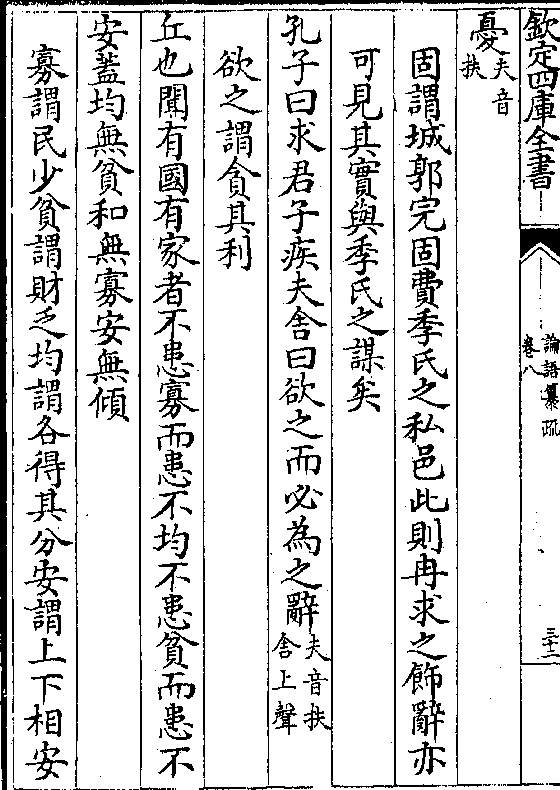 欽定四庫全書
論語纂疏
卷八
三十二
憂夫音扶
固謂城郭完固費季氏之私邑此則冉求之飾辭亦
可見其實與季氏之謀矣
孔子曰求君子疾夫舍曰欲之而必為之辭夫音扶舍上聲
欲之謂貪其利
丘也聞有國有家者不患寡而患不均不患貧而患不
安蓋均無貧和無寡安無傾
寡謂民少貧謂財乏均謂各得其分安謂上下相安